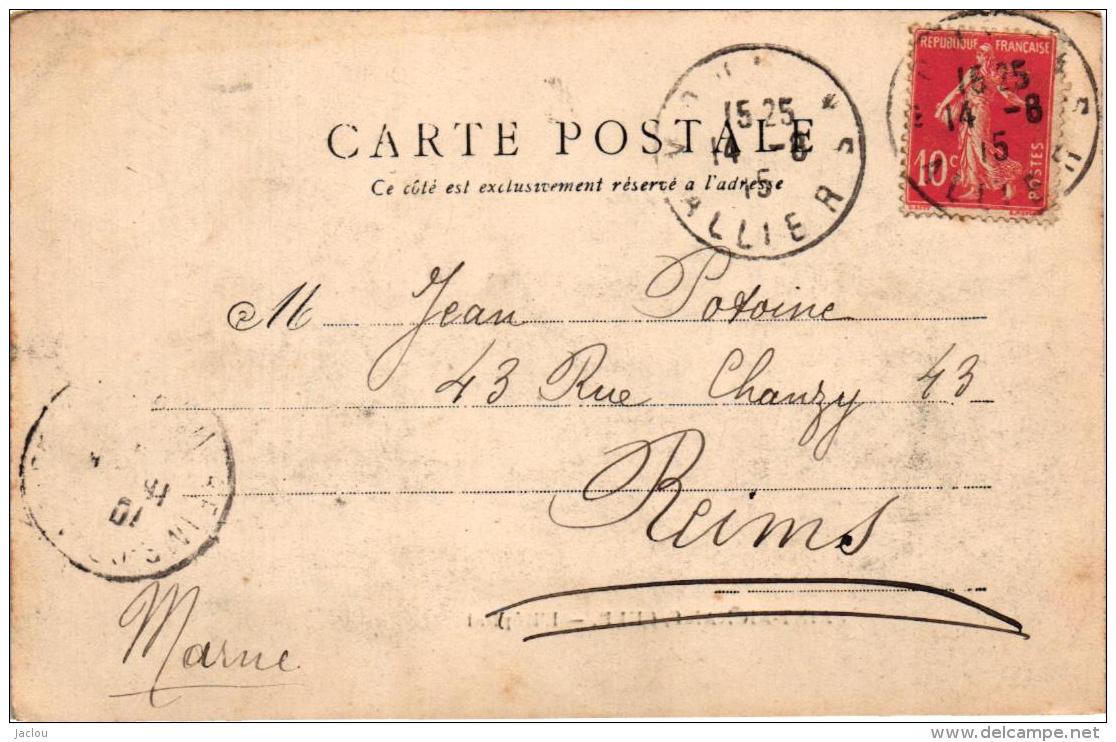 CARTE POSTALE
Ce côté est exclusivement réservé a l'adresse
15 25
14 -8
15
ALLIER
RÉPUBLIQUE FRANÇAISE
15 25
14 -8
15
10 c
POSTES
M Jean Potoine
43 Rue Chanzy 43
Reims
Marne
Jaclou
www.delcampe.net